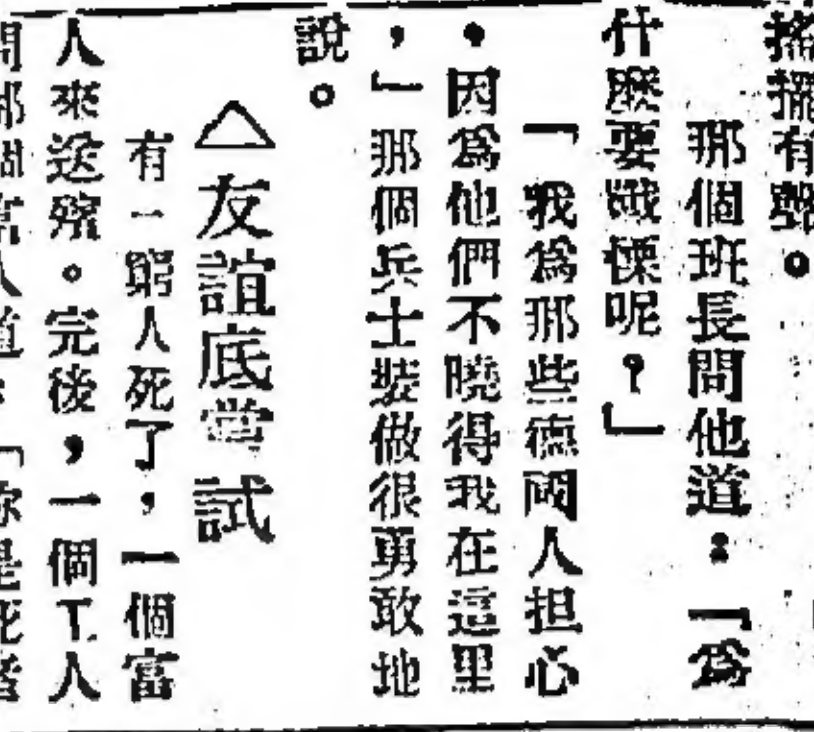 搖擺有聲。
那個班長問他道：「爲
什麽要戰慄呢？」
「我爲那些德國人担心
，因爲他們不曉得我在這里
，」那個兵士裝做很勇敢地
說。
△友誼底嘗試
有一窮人死了，一個富
人來送殯。完後，一個工人
問那個富人道：「你是死者